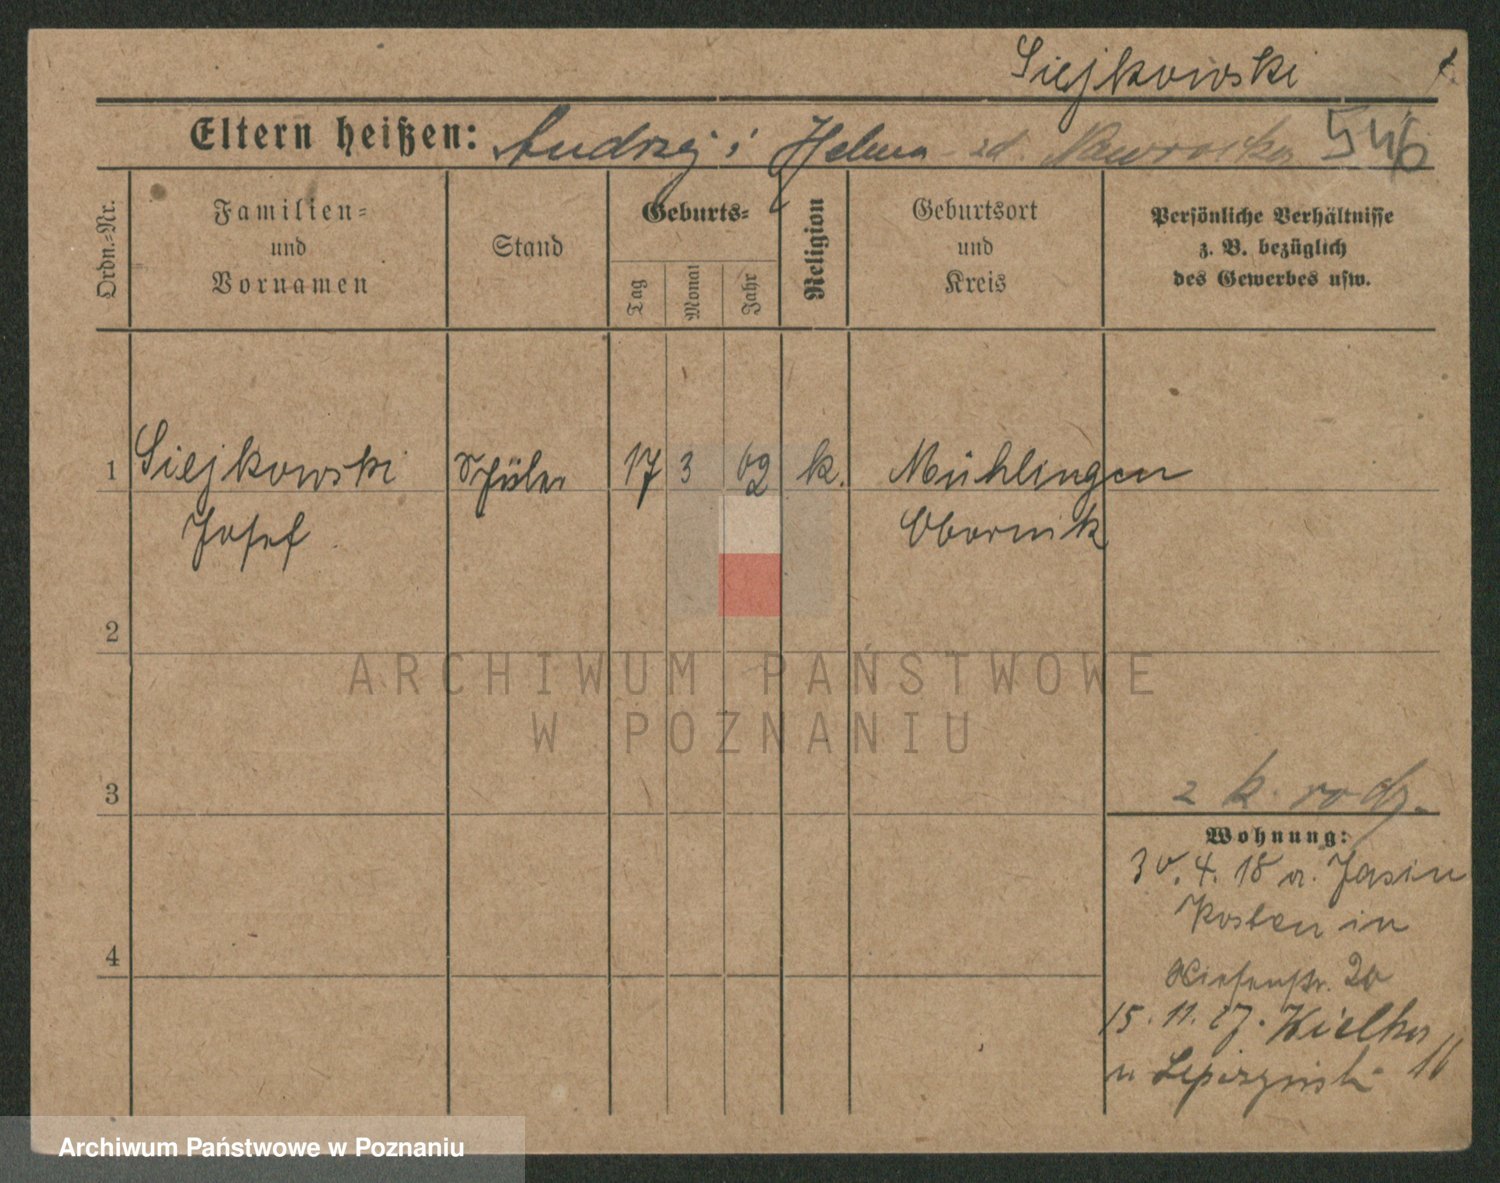 Siejkowski
Eltern heißen: Andrzej i Helena zd. Nawrocka 546
Ordn.-Nr.
Familien-
und
Vornamen
Stand
Geburts-
Tag
Monat
Jahr
Religion
Geburtsort
und
Kreis
Persönliche Verhältnisse
z. B. bezüglich
des Gewerbes usw.
1 Siejkowski Schüler 17 3 02 k. Mühlingen
Josef Obornik
2
3
z k. rodz.
Wohnung:
30.4.18 a. Jasin
Kosten in
20
15.11.27. Wielka
u 16
4
ARCHIWUM PAŃSTWOWE
W POZNANIU
Archiwum Państwowe w Poznaniu